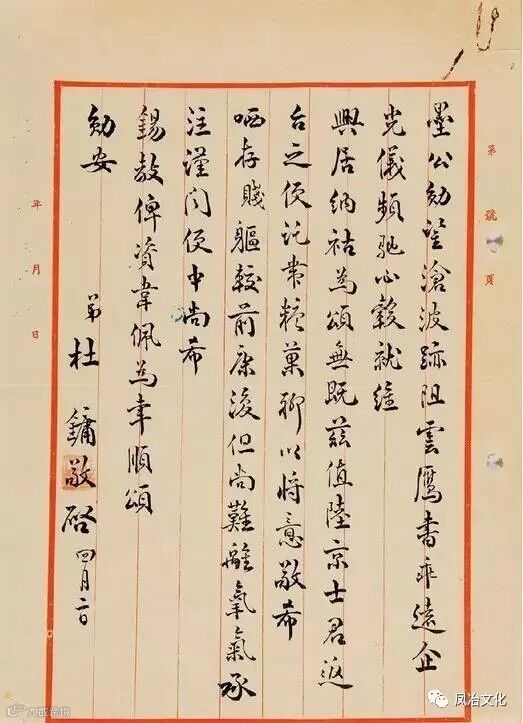 墨公勛鋻滄波跡阻雲鴈書乖遠企
光儀頻馳心轂就維
興居納祜為頌無既茲值陸京士君返
台之便託帶糖菓聊以將意敬希
哂存賤軀較前康復但尚難離氧氣承
注謹聞便中尚希
錫教俾資韋佩為幸順頌
勛安
弟 杜鏞敬啓 四月二日
第 號 頁
年 月 日
大成逅墉
凤冶文化